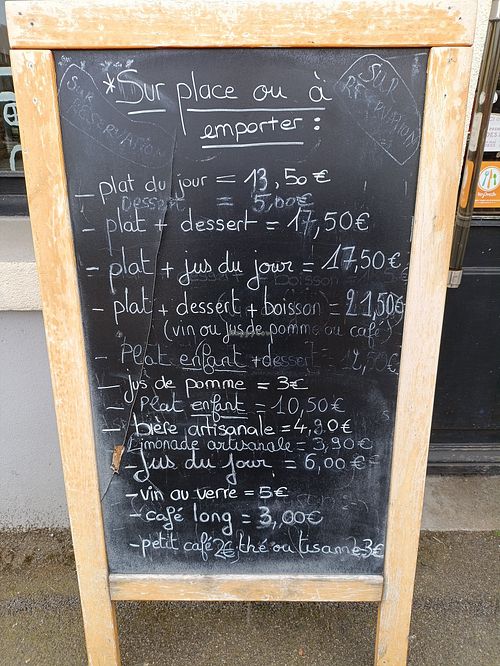 *Sur place ou à
emporter :
SUR
RESERVATION
SUR
RESERVATION
- plat du jour = 13,50€
Dessert = 5,00€
- plat + dessert = 17,50€
- plat + jus du jour = 17,50€
- plat + dessert + boisson = 21,50€
(vin ou jus de pomme ou café)
- Plat enfant + dessert 12,50€
- jus de pomme = 3€
- Plat enfant = 10,50€
- bière artisanale = 4,90€
Limonade artisanale = 3,90€
- Jus du jour = 6,00€
- vin au verre = 5€
- café long = 3,00€
- petit café 2€ thé ou tisane 3€